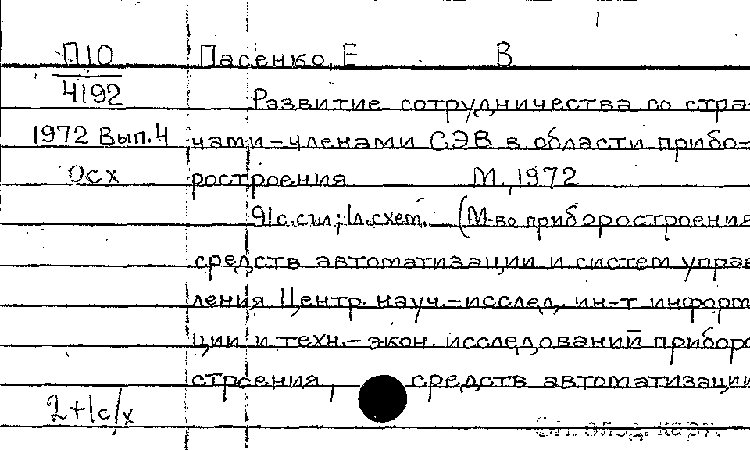 П10 Пасенко, Е В
4192
Развитие сотрудничества со стра-
1972 Вып.4 нами-членами СЭВ в области прибо-
Осх ростроения М., 1972
91с.с ил.; 1л.схем. (М-во приборостроения
средств автоматизации и систем управ
ления Центр. науч.-исслед. ин-т информ
ции и техн.-экон. исследований приборо
строения, средств автоматизации
2+1с/х
См. след. карт.